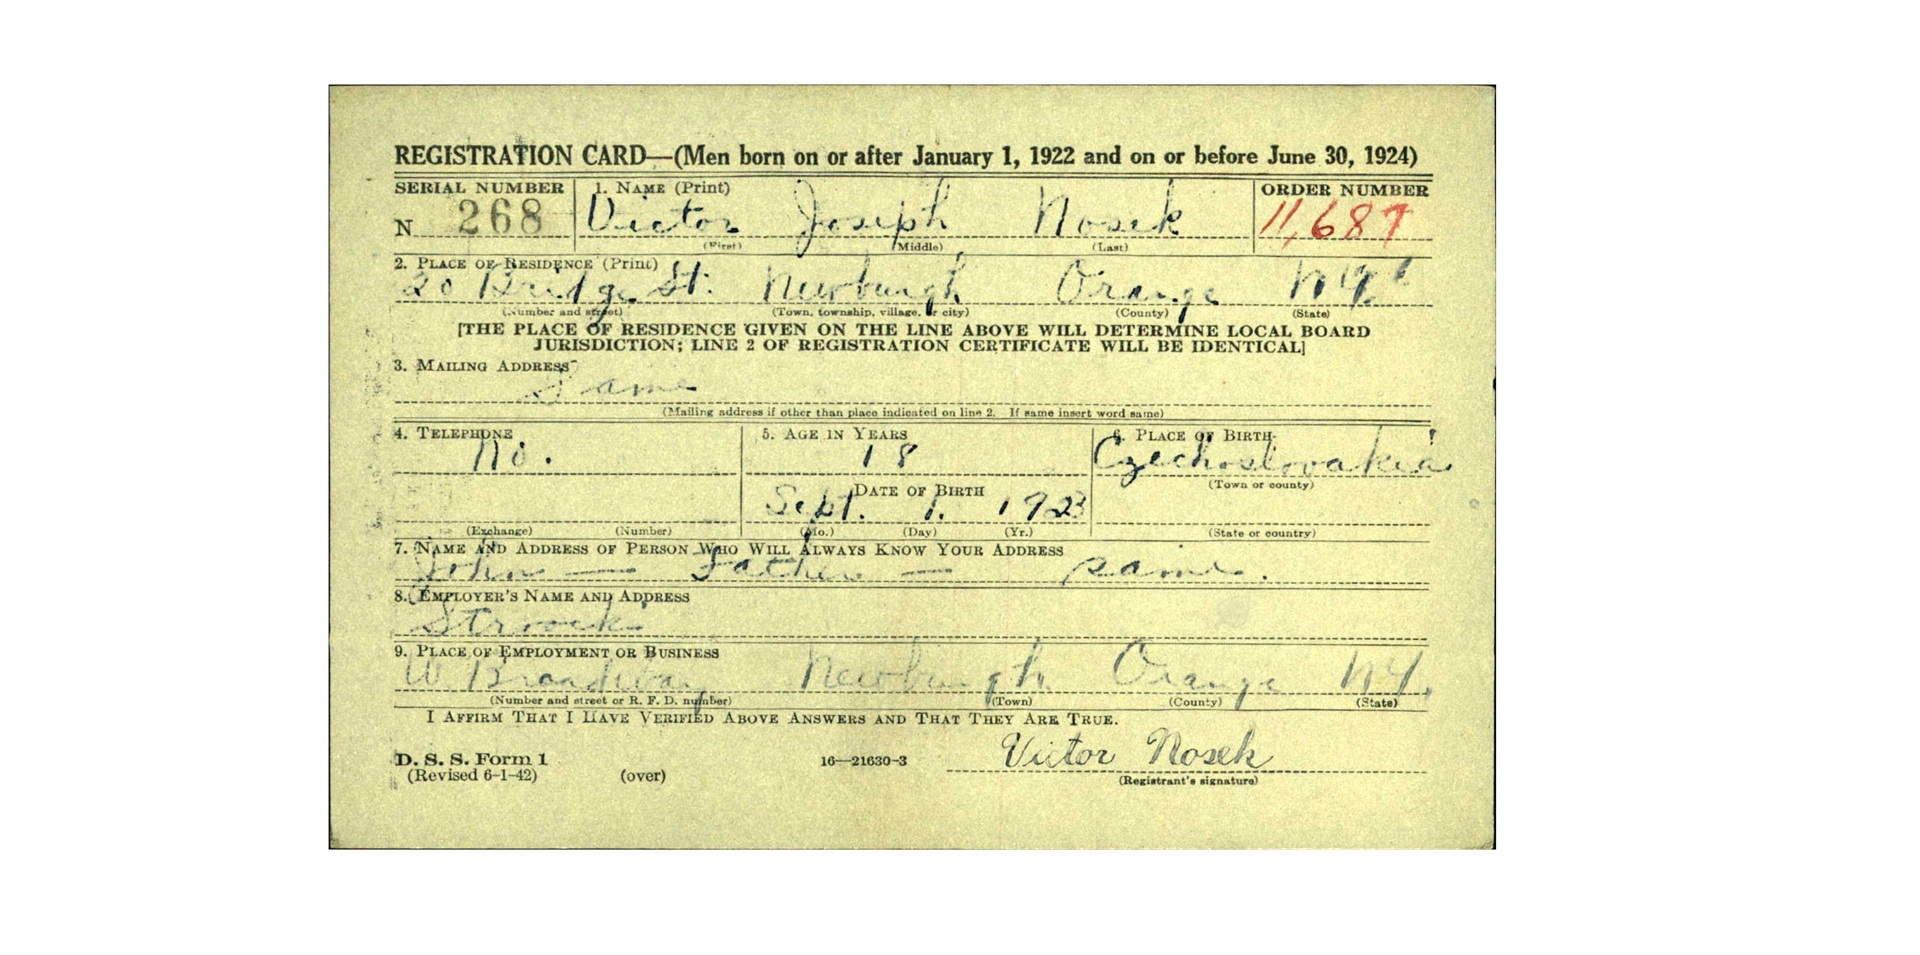 REGISTRATION CARD—(Men born on or after January 1, 1922 and on or before June 30, 1924)
SERIAL NUMBER 1. NAME (Print) ORDER NUMBER
N 268 Victor Joseph Nosek 11,687
(First) (Middle) (Last)
2. PLACE OF RESIDENCE (Print)
20 Bridge St. Newburgh Orange N.Y.
(Number and street) (Town, township, village, or city) (County) (State)
[THE PLACE OF RESIDENCE GIVEN ON THE LINE ABOVE WILL DETERMINE LOCAL BOARD
JURISDICTION; LINE 2 OF REGISTRATION CERTIFICATE WILL BE IDENTICAL]
3. MAILING ADDRESS
Same
(Mailing address if other than place indicated on line 2. If same insert word same)
4. TELEPHONE 5. AGE IN YEARS 6. PLACE OF BIRTH
No. 18 Czechoslovakia
(Town or county)
DATE OF BIRTH
Sept. 1. 1923
(Exchange) (Number) (Mo.) (Day) (Yr.) (State or country)
7. NAME AND ADDRESS OF PERSON WHO WILL ALWAYS KNOW YOUR ADDRESS
John — Father — same.
8. EMPLOYER'S NAME AND ADDRESS
Stroock
9. PLACE OF EMPLOYMENT OR BUSINESS
W. Broadway Newburgh Orange N.Y.
(Number and street or R. F. D. number) (Town) (County) (State)
I AFFIRM THAT I HAVE VERIFIED ABOVE ANSWERS AND THAT THEY ARE TRUE.
D. S. S. Form 1 16—21630-3 Victor Nosek
(Revised 6-1-42) (over) (Registrant's signature)